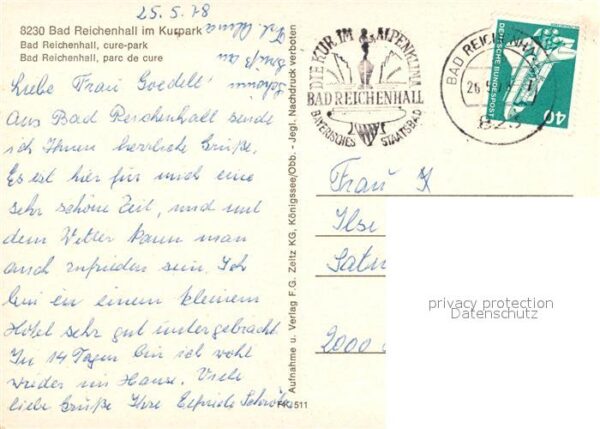 25.5.78
8230 Bad Reichenhall im Kurpark
Bad Reichenhall, cure-park
Bad Reichenhall, parc de cure
Liebe Frau Goedelt!
Aus Bad Reichenhall sende
ich Ihnen herzliche Grüße.
Es ist hier für mich eine
sehr schöne Zeit, und mit
dem Wetter kann man
auch zufrieden sein. Ich
bin in einem kleinem
Hotel sehr gut untergebracht.
In 14 Tagen bin ich wohl
wieder im Hause. Viele
liebe Grüße Ihre Elfriede
Gruß an
Aufnahme u. Verlag F.G. Zeitz KG, Königssee/Obb. - Jegl. Nachdruck verboten
511
DIE KUR IM ALPENKLIMA
BAD REICHENHALL
BAYERISCHES STAATSBAD
BAD REICHENHALL
26
823
DEUTSCHE BUNDESPOST
40
Frau
Ilse
2000
privacy protection
Datenschutz